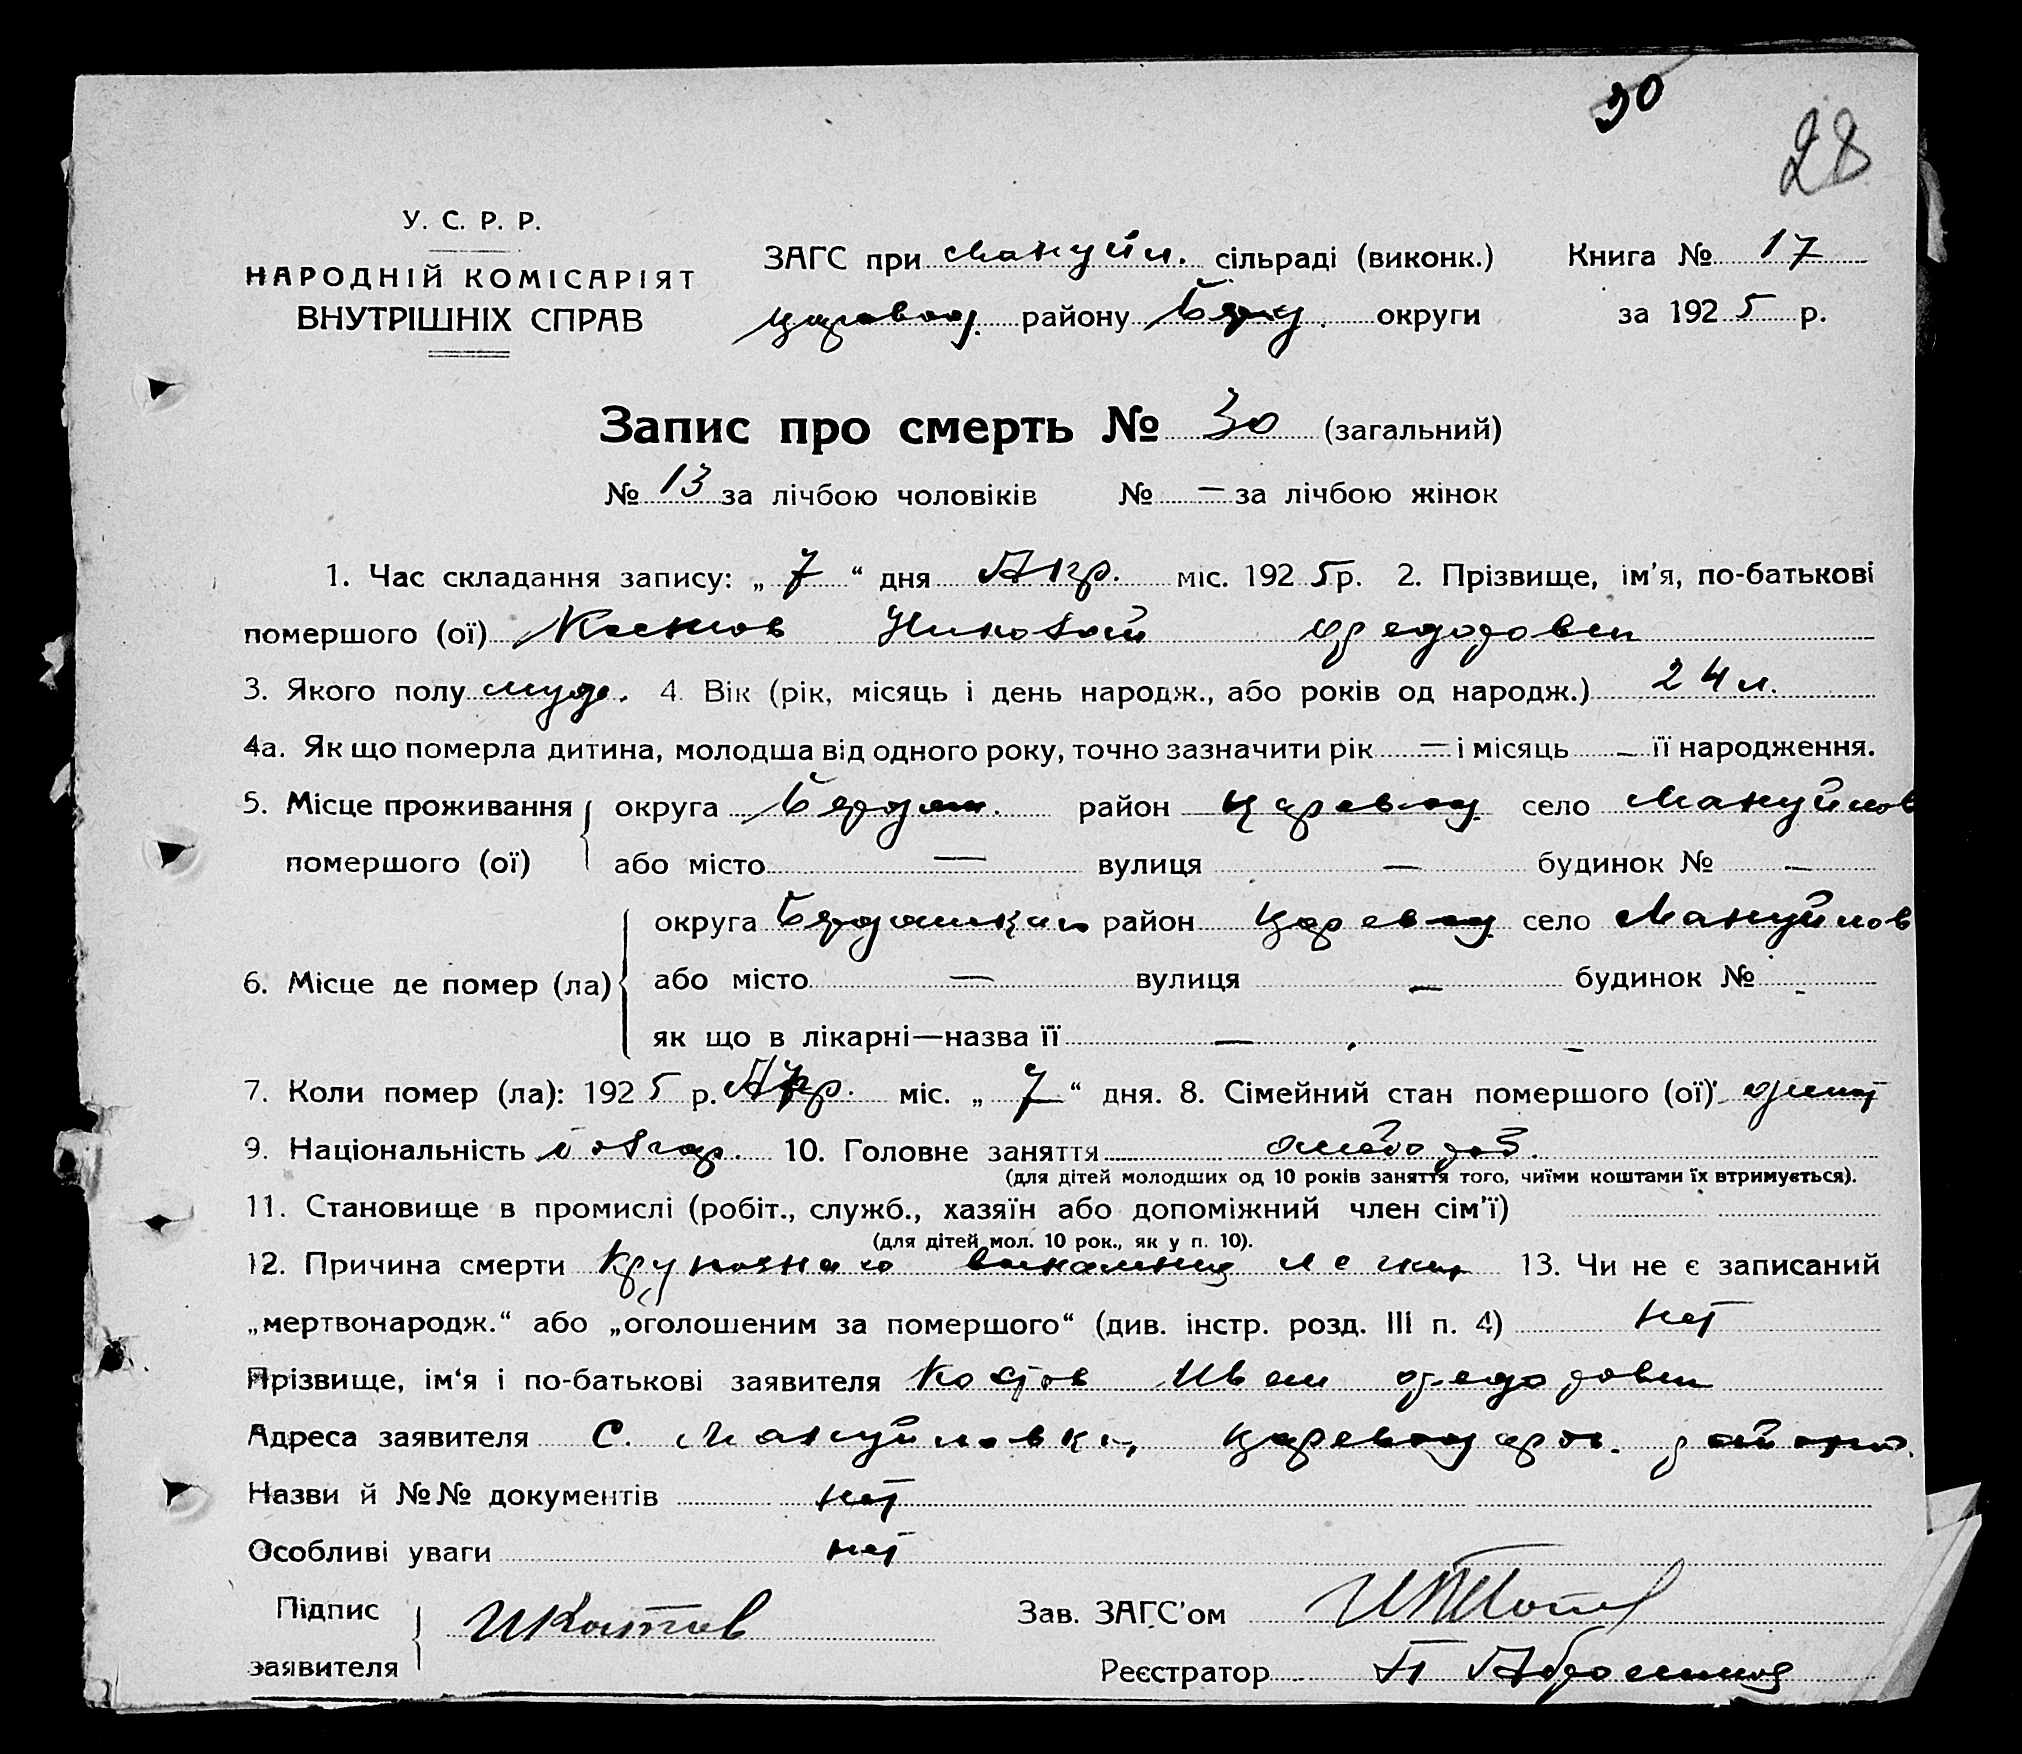 30
28
У. С. Р. Р.
НАРОДНІЙ КОМІСАРІЯТ
ВНУТРІШНІХ СПРАВ
ЗАГС при Мануйл. сільраді (виконк.) Книга № 17
царевод. району Берд. округи за 1925 р.
Запис про смерть № 30 (загальний)
№ 13 за лічбою чоловіків № — за лічбою жінок
1. Час складання запису: „ 7 “ дня Апр. міс. 1925 р. 2. Прізвище, ім'я, по-батькові
помершого (ої) Костов Николай
3. Якого полу муж. 4. Вік (рік, місяць і день народж., або років од народж.) 24 л.
4а. Як що померла дитина, молодша від одного року, точно зазначити рік — і місяць — її народження.
5. Місце проживання округа Бердян. район Царевод село Мануйлов
помершого (ої) або місто — вулиця — будинок № —
округа район Царевод село Мануйлов
6. Місце де помер (ла) або місто — вулиця — будинок № -
як що в лікарні—назва її — . –
7. Коли помер (ла): 1925 р. Апр. міс. „ 7 “ дня. 8. Сімейний стан помершого (ої):
9. Національність болгар. 10. Головне заняття
(для дітей молодших од 10 років заняття того, чиїми коштами їх втримується).
11. Становище в промислі (робіт., служб., хазяїн або допоміжний член сім'ї)
(для дітей мол. 10 рок., як у п. 10).
12. Причина смерти легких 13. Чи не є записаний
„мертвонародж.“ або „оголошеним за помершого“ (див. інстр. розд. III п. 4) нет
Прізвище, ім'я і по-батькові заявителя Костов Иван
Адреса заявителя С. Мануйловки, Цареводаров. района.
Назви й №№ документів нет
Особливі уваги нет
Підпис
заявителя И Костов
Зав. ЗАГС'ом
Реєстратор П